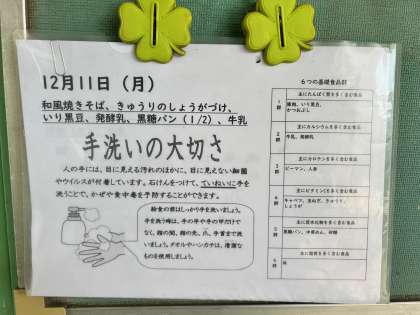 12月11日（月）
和風焼きそば、きゅうりのしょうがづけ、
いり黒豆、発酵乳、黒糖パン（1/2）、牛乳
手洗いの大切さ
人の手には、目に見える汚れのほかに、目に見えない細菌
やウイルスが付着しています。石けんをつけて、ていねいに手を
洗うことで、かぜや食中毒を予防することができます。
給食の前はしっかり手を洗いましょう。
手を洗う時は、手の平や手の甲だけで
なく、指の間、指の先、爪、手首まで洗
いましょう。タオルやハンカチは、清潔な
ものを使用しましょう。
6つの基礎食品群
主にたんぱく質を多く含む食品
1群
豚肉、いり黒豆、
かつおぶし
主にカルシウムを多く含む食品
2群
牛乳、発酵乳
主にカロテンを多く含む食品
3群
ピーマン、人参
主にビタミンCを多く含む食品
4群
キャベツ、玉ねぎ、きゅうり、
しょうが
主に炭水化物を多く含む食品
5群
黒糖パン、中華めん、砂糖
主に脂質を多く含む食品
6群
油